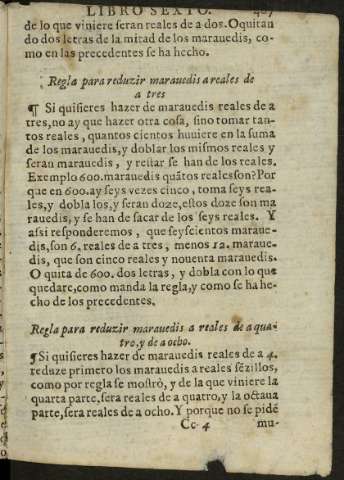 LIBRO SEXTO.
de lo que viniere seran reales de a dos. O quitan
do dos letras de la mitad de los marauedis, co-
mo en las precedentes se ha hecho.
Regla para reduzir marauedis a reales de
a tres
¶ Si quisieres hazer de marauedis reales de a
tres, no ay que hazer otra cosa, sino tomar tan-
tos reales, quantos cientos huuiere en la suma
de los marauedis, y doblar los mismos reales y
seran marauedis, y restar se han de los reales.
Exemplo 600. marauedis quãtos reales son? Por
que en 600. ay seys vezes cinco, toma seys rea-
les, y dobla los, y seran doze, estos doze son ma
rauedis, y se han de sacar de los seys reales. Y
assi responderemos, que seyscientos maraue-
dis, son 6. reales de a tres, menos 12. maraue-
dis, que son cinco reales y nouenta marauedis.
O quita de 600. dos letras, y dobla con lo que
quedare, como manda la regla, y como se ha he-
cho de los precedentes.
Regla para reduzir marauedis a reales de a qua-
tro, y de a ocho.
¶ Si quisieres hazer de marauedis reales de a 4.
reduze primero los marauedis a reales sẽzillos,
como por regla se mostrò, y de la que viniere la
quarta parte, sera reales de a quatro, y la octaua
parte, sera reales de a ocho. Y porque no se pide
Cc 4 mu-